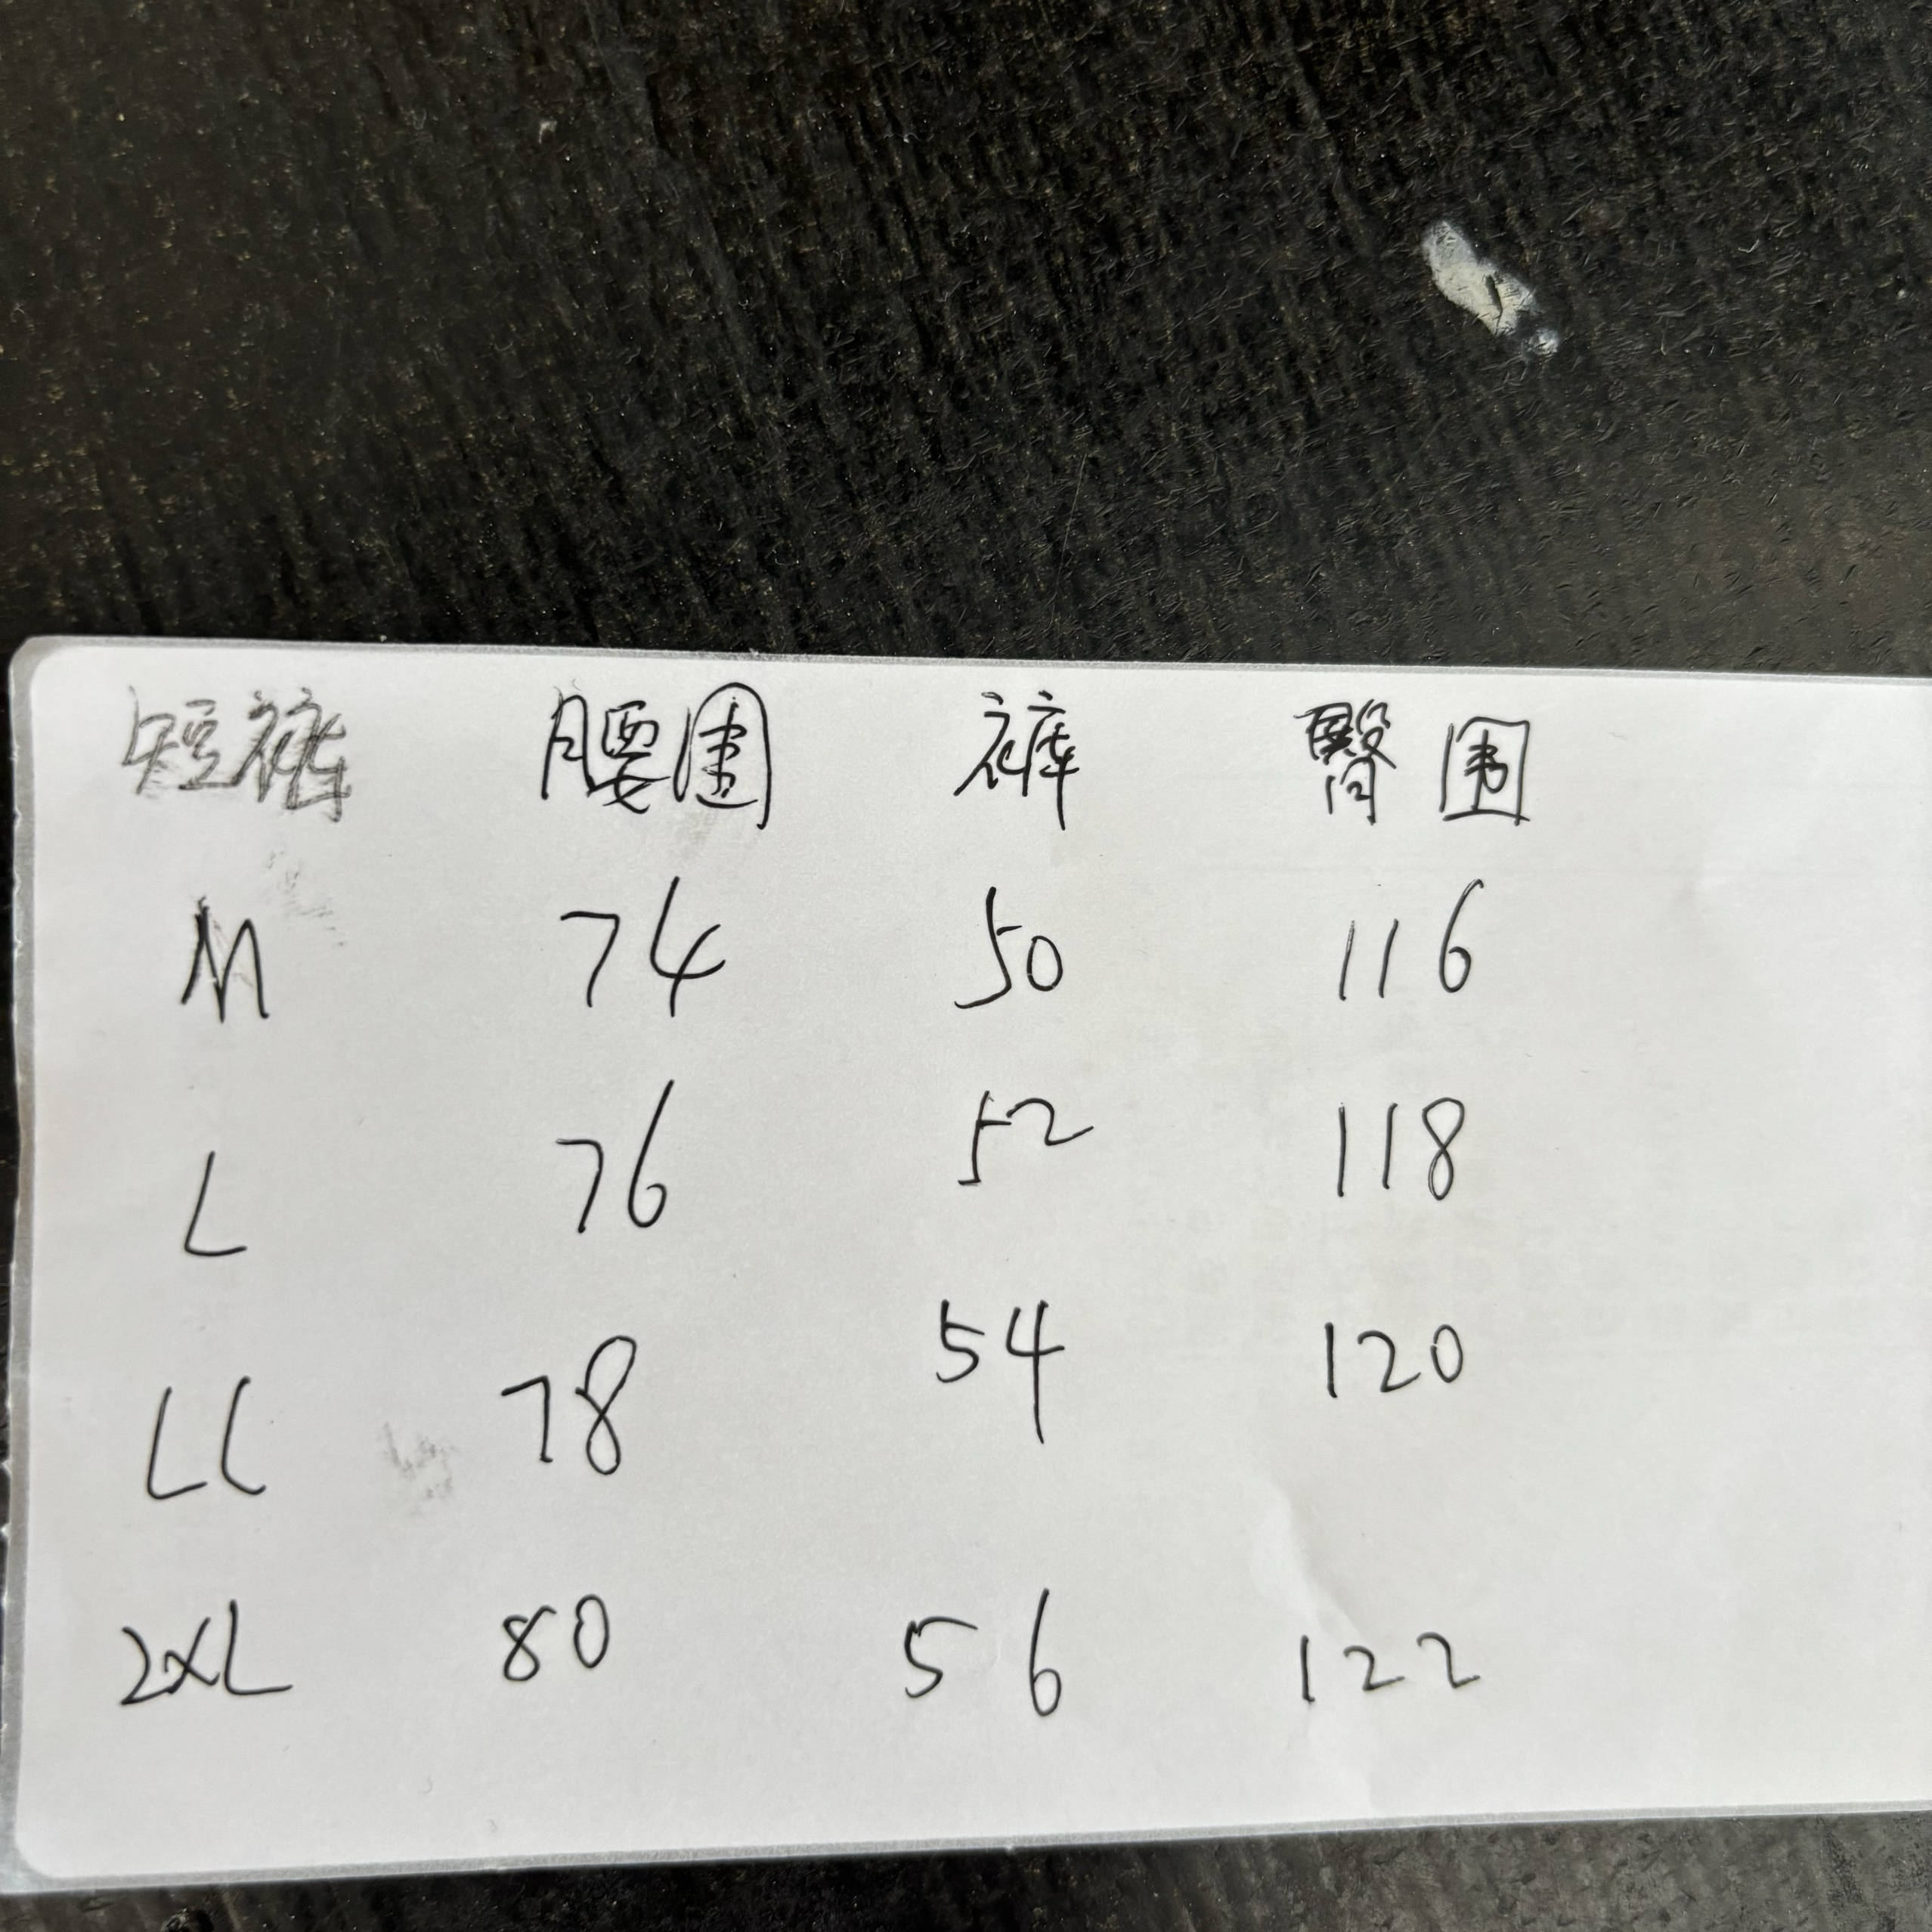 短裤 腰围 裤 臀围
M 74 50 116
L 76 52 118
LL 78 54 120
2XL 80 56 122